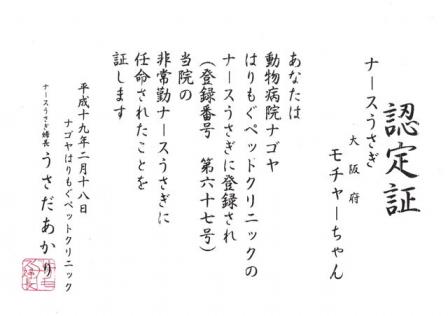 認定証
ナースうさぎ
大阪府
モチャーちゃん
あなたは
動物病院ナゴヤ
はりもぐペットクリニックの
ナースうさぎに登録され
(登録番号 第六十七号)
当院の
非常勤ナースうさぎに
任命されたことを
証します
平成十九年二月十八日
ナゴヤはりもぐペットクリニック
ナースうさぎ婦長 うさだあかり